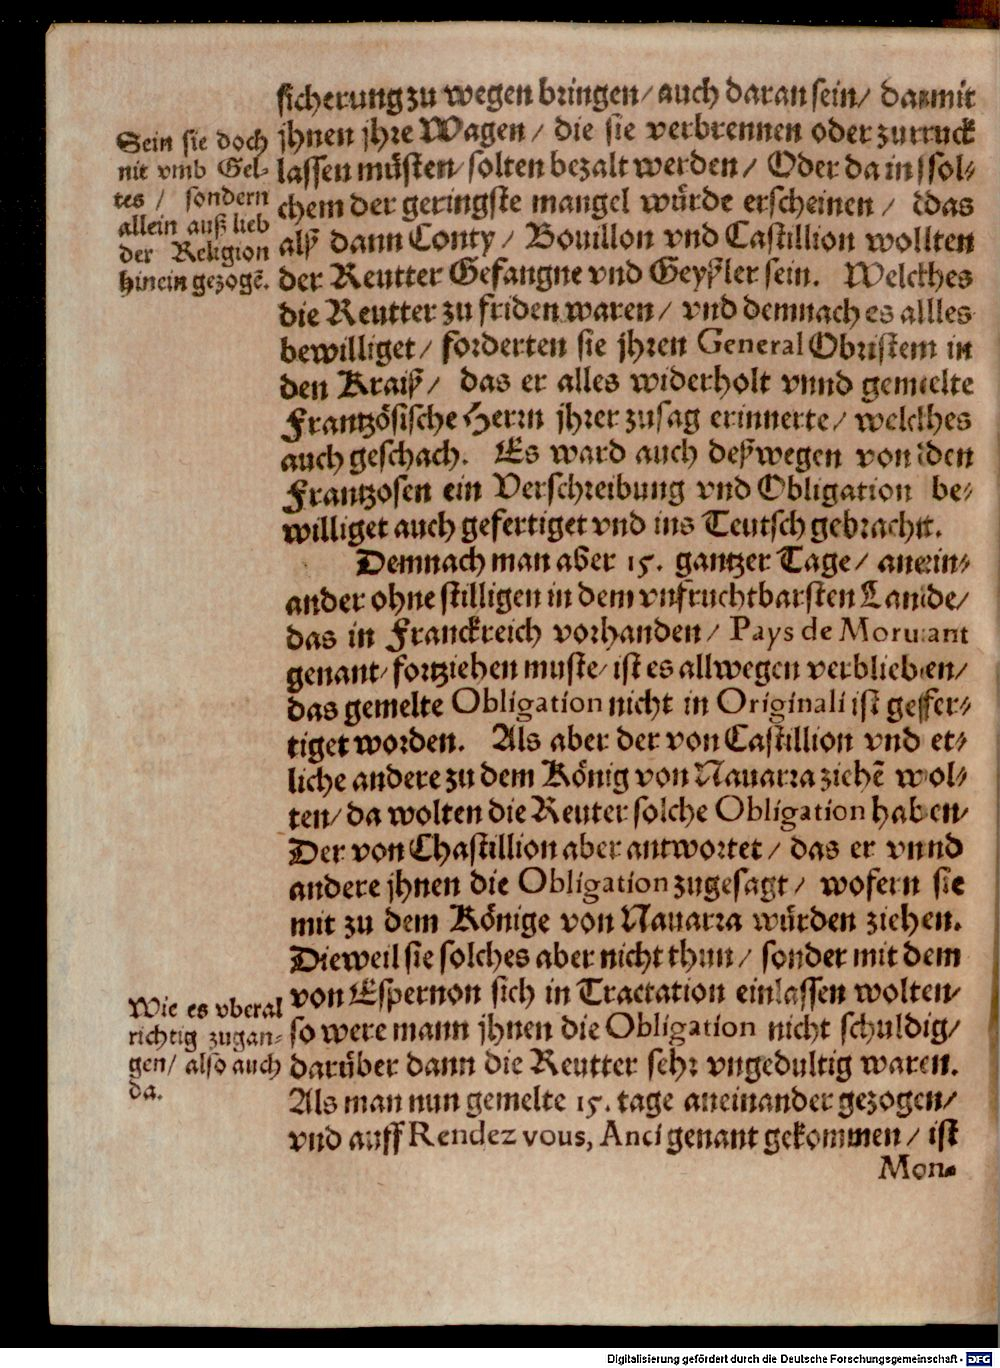 sicherung zu wegen bringen/ auch daran sein/ darmit
jhnen jhre Wagen/ die sie verbrennen oder zurruck
lassen müsten/ solten bezalt werden/ Oder da in sol-
chem der geringste mangel würde erscheinen/ das
alß dann Conty/ Bouillon vnd Castillion wollten
der Reutter Gefangne vnd Geyßler sein. Welches
die Reutter zu friden waren/ vnd demnach es alles
bewilliget/ forderten sie jhren General Obristem in
den Kraiß/ das er alles widerholt vnnd gemelte
Frantzösische Herrn jhrer zusag erinnerte/ welches
auch geschach. Es ward auch deßwegen von den
Frantzosen ein Verschreibung vnd Obligation be-
williget auch gefertiget vnd ins Teutsch gebracht.
Demnach man aber 15. gantzer Tage/ anein-
ander ohne stilligen in dem vnfruchtbarsten Lande/
das in Franckreich vorhanden/ Pays de Moruant
genant/ fortziehen muste/ ist es allwegen verblieben/
das gemelte Obligation nicht in Originali ist gefer-
tiget worden. Als aber der von Castillion vnd et-
liche andere zu dem König von Nauarra ziehẽ wol-
ten/ da wolten die Reuter solche Obligation haben/
Der von Chastillion aber antwortet/ das er vnnd
andere jhnen die Obligation zugesagt/ wofern sie
mit zu dem Könige von Nauarra würden ziehen.
Dieweil sie solches aber nicht thun/ sonder mit dem
von Espernon sich in Tractation einlassen wolten/
so were mann jhnen die Obligation nicht schuldig/
darüber dann die Reutter sehr vngedultig waren.
Als man nun gemelte 15. tage aneinander gezogen/
vnd auff Rendez vous, Anci genant gekommen/ ist
Mon-
Sein sie doch
nit vmb Gel-
tes/ sondern
allein auß lieb
der Religion
hinein gezogẽ.
Wie es vberal
richtig zugan-
gen/ also auch
da.
Digitalisierung gefördert durch die Deutsche Forschungsgemeinschaft - DFG